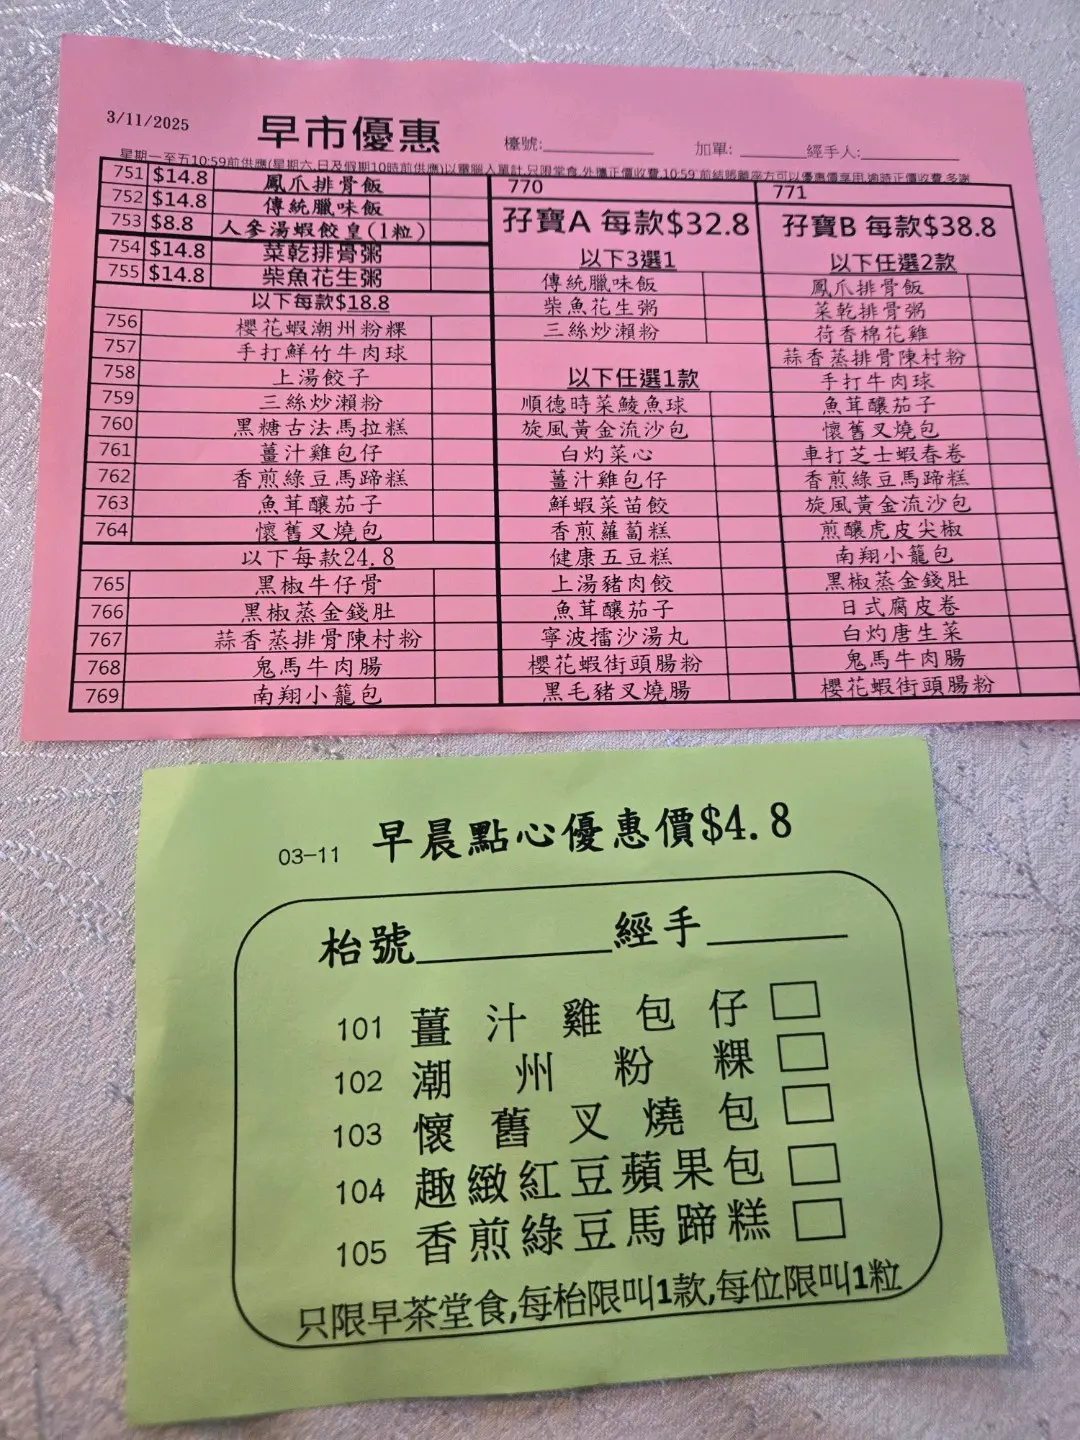 3/11/2025 早市優惠 檯號:____ 加單:____經手人:____
星期一至五10:59前供應(星期六,日及假期10時前供應)以電腦入單計,只限堂食,外賣正價收費,10:59前結賬離座方可以優惠價享用,逾時正價收費,多謝
751 $14.8 鳳爪排骨飯
752 $14.8 傳統臘味飯
753 $8.8 人參湯蝦餃皇(1粒)
754 $14.8 菜乾排骨粥
755 $14.8 柴魚花生粥
以下每款$18.8
756 櫻花蝦潮州粉粿
757 手打鮮竹牛肉球
758 上湯餃子
759 三絲炒瀨粉
760 黑糖古法馬拉糕
761 薑汁雞包仔
762 香煎綠豆馬蹄糕
763 魚茸釀茄子
764 懷舊叉燒包
以下每款24.8
765 黑椒牛仔骨
766 黑椒蒸金錢肚
767 蒜香蒸排骨陳村粉
768 鬼馬牛肉腸
769 南翔小籠包
770
孖寶A 每款$32.8
以下3選1
傳統臘味飯
柴魚花生粥
三絲炒瀨粉
以下任選1款
順德時菜鯪魚球
旋風黃金流沙包
白灼菜心
薑汁雞包仔
鮮蝦菜苗餃
香煎蘿蔔糕
健康五豆糕
上湯豬肉餃
魚茸釀茄子
寧波擂沙湯丸
櫻花蝦街頭腸粉
黑毛豬叉燒腸
771
孖寶B 每款$38.8
以下任選2款
鳳爪排骨飯
菜乾排骨粥
荷香棉花雞
蒜香蒸排骨陳村粉
手打牛肉球
魚茸釀茄子
懷舊叉燒包
車打芝士蝦春卷
香煎綠豆馬蹄糕
旋風黃金流沙包
煎釀虎皮尖椒
南翔小籠包
黑椒蒸金錢肚
日式腐皮卷
白灼唐生菜
鬼馬牛肉腸
櫻花蝦街頭腸粉
03-11 早晨點心優惠價$4.8
枱號____經手____
101 薑汁雞包仔
102 潮州粉粿
103 懷舊叉燒包
104 趣緻紅豆蘋果包
105 香煎綠豆馬蹄糕
只限早茶堂食,每枱限叫1款,每位限叫1粒